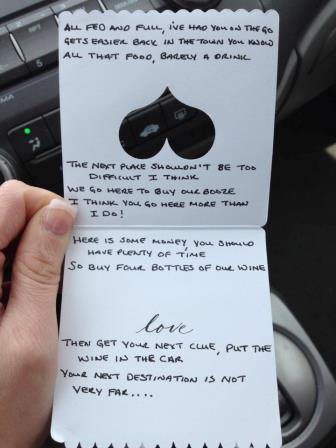 ALL FED AND FULL, I'VE HAD YOU ON THE GO
GETS EASIER BACK IN THE TOWN YOU KNOW
ALL THAT FOOD, BARELY A DRINK
THE NEXT PLACE SHOULDN'T BE TOO
DIFFICULT I THINK
WE GO HERE TO BUY OUR BOOZE
I THINK YOU GO HERE MORE THAN
I DO!
HERE IS SOME MONEY, YOU SHOULD
HAVE PLENTY OF TIME
SO BUY FOUR BOTTLES OF OUR WINE
love
THEN GET YOUR NEXT CLUE, PUT THE
WINE IN THE CAR
YOUR NEXT DESTINATION IS NOT
VERY FAR....